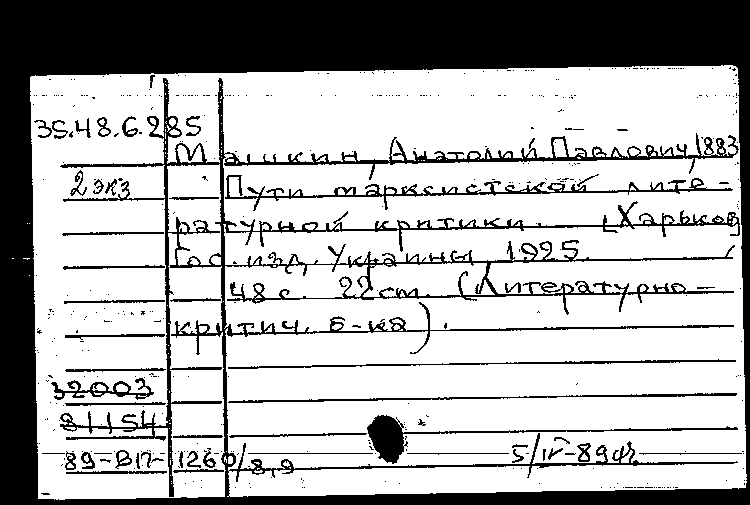 35.48.6.285
Машкин, Анатолий Павлович, 1883
2 экз
Пути марксистской лите-
ратурной критики. [Харьков]
Гос. изд. Украины, 1925.
48 с. 22 cm. (Литературно-
критич. б-ка).
32003
81154
89-ВП-1260/8,9
5/IV-89